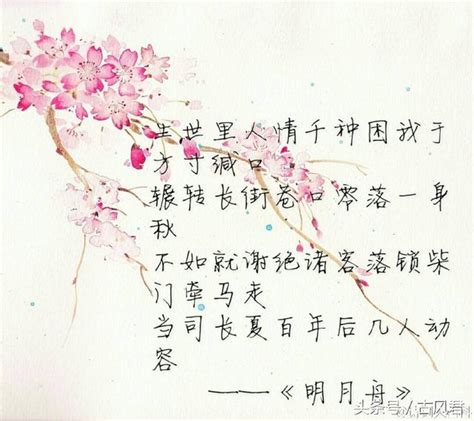 生世里人情千种困我于
方寸缄口
辗转长街巷口零落一身
秋
不如就谢绝诸客落锁柴
门牵马走
当司长夏百年后几人动
容
——《明月舟》
头条号/古风君